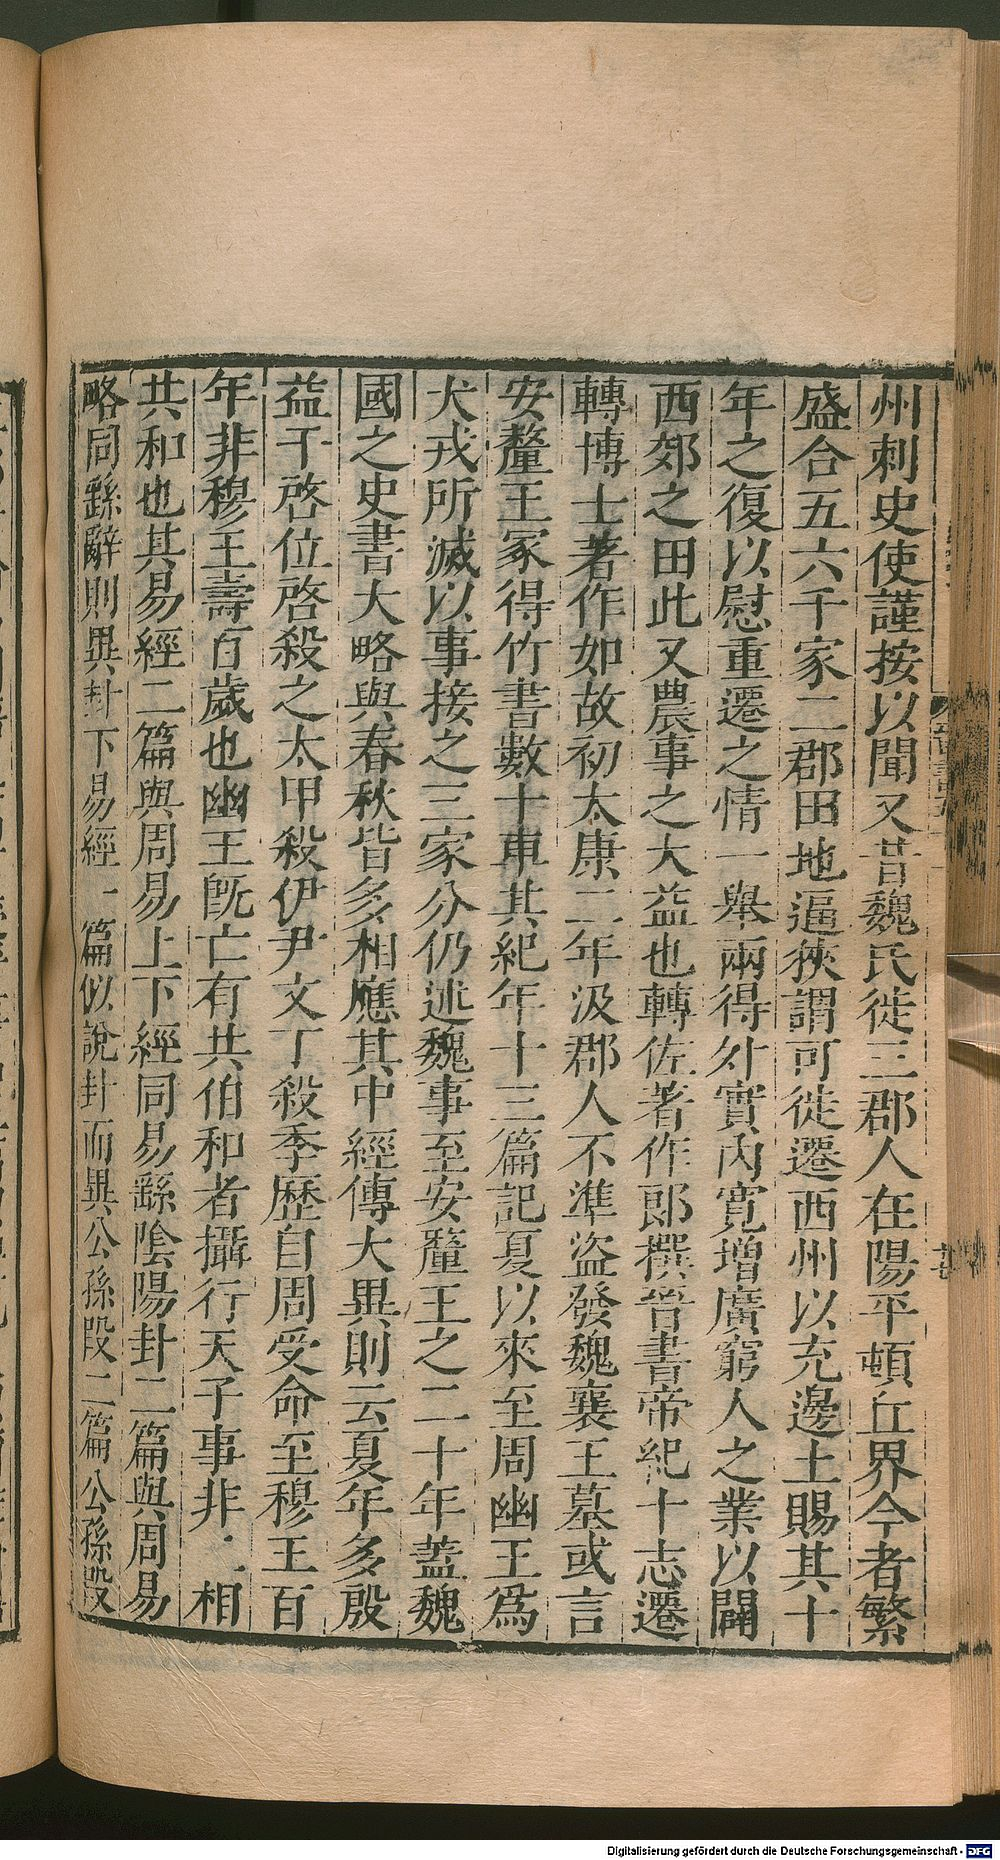 州刺史使謹按以聞又昔魏氏徙三郡人在陽平頓丘界今者繁
盛合五六千家二郡田地逼狹謂可徙遷西州以充邊土賜其十
年之復以慰重遷之情一舉兩得外實內寛增廣窮人之業以闢
西郊之田此又農事之大益也轉佐著作郎撰晉書帝紀十志遷
轉博士著作如故初太康二年汲郡人不準盜發魏襄王墓或言
安釐王冢得竹書數十車其紀年十三篇記夏以來至周幽王爲
犬戎所滅以事接之三家分仍述魏事至安釐王之二十年蓋魏
國之史書大略與春秋皆多相應其中經傳大異則云夏年多殷
益干啓位啓殺之太甲殺伊尹文丁殺季歷自周受命至穆王百
年非穆王壽百歲也幽王旣亡有共伯和者攝行天子事非二相
共和也其易經二篇與周易上下經同易繇陰陽卦二篇與周易
略同繇辭則異卦下易經一篇似說卦而異公孫段二篇公孫段
Digitalisierung gefördert durch die Deutsche Forschungsgemeinschaft - DFG